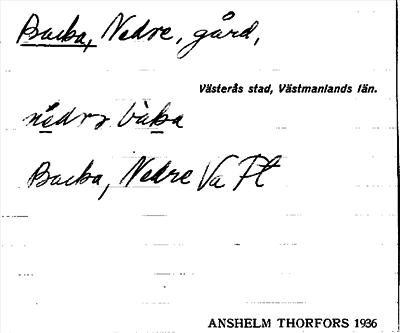 Backa, Nedre, gård,
Västerås stad, Västmanlands län.
nẹdrɜ bàka
Backa, Nedre Va Pl
ANSHELM THORFORS 1936